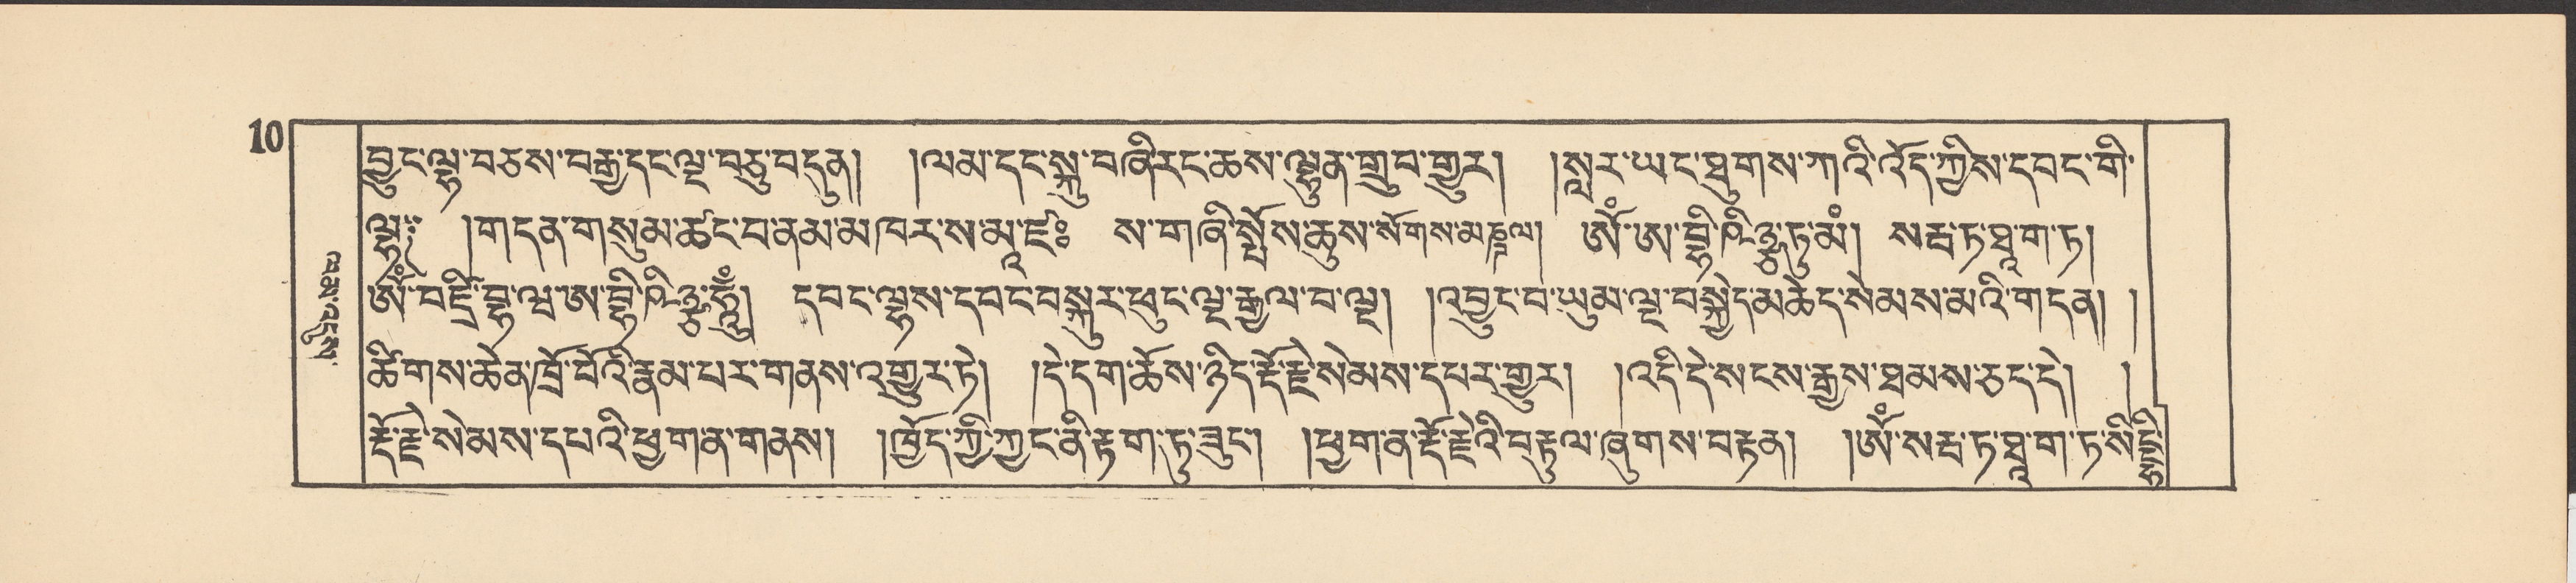 10
བྱུང་ལྷ་བཅས་བརྒྱ་དང་ལྔ་བཅུ་བདུན། །ལམ་དང་སྐུ་བཞིརང་ཆས་ལྷུན་གྲུབ་གྱུར། །སླར་ཡང་ཐུགས་ཀའི་འོད་ཀྱིས་དབང་གི་
ལྷ༔ །གདན་གསུམ་ཚང་བ་ནམ་མཁར་ས་མཱ་ཛཿ ས་གཞི་སྤོས་ཆུས་སོགས་མཎྜལ། ༀ་ཨ་བྷི་ཥིཉྩ་ཏུ་མཾ། སརྦ་ཏ་ཐཱ་ག་ཏ།
ༀ་བཛྲཱི་བྷ་ཝ་ཨ་བྷི་ཥིཉྩ་ཧཱུྃ། དབང་ལྷས་དབང་བསྐུར་ཕུང་ལྔ་རྒྱལ་བ་ལྔ། །འབྱུང་བ་ཡུམ་ལྔ་བསྐྱེད་མཆེད་སེམས་མའི་གདན། །
ཚིགས་ཆེན་ཁྲོ་བོའི་རྣམ་པར་གནས་འགྱུར་ཏེ། །དེ་དག་ཆོས་ཉིད་རྡོ་རྗེ་སེམས་དཔར་གྱུར། །འདི་དེ་སངས་རྒྱས་ཐམས་ཅད་དེ། །
རྡོ་རྗེ་སེམས་དཔའི་ཕྱག་ན་གནས། །ཁྱོད་ཀྱི་ཀྱང་ནི་རྟག་ཏུ་ཟུང་། །ཕྱག་ན་རྡོ་རྗེའི་བརྟུལ་ཞུགས་བརྟན། །ༀ་སརྦ་ཏ་ཐཱ་ག་ཏ་སིདྡྷི